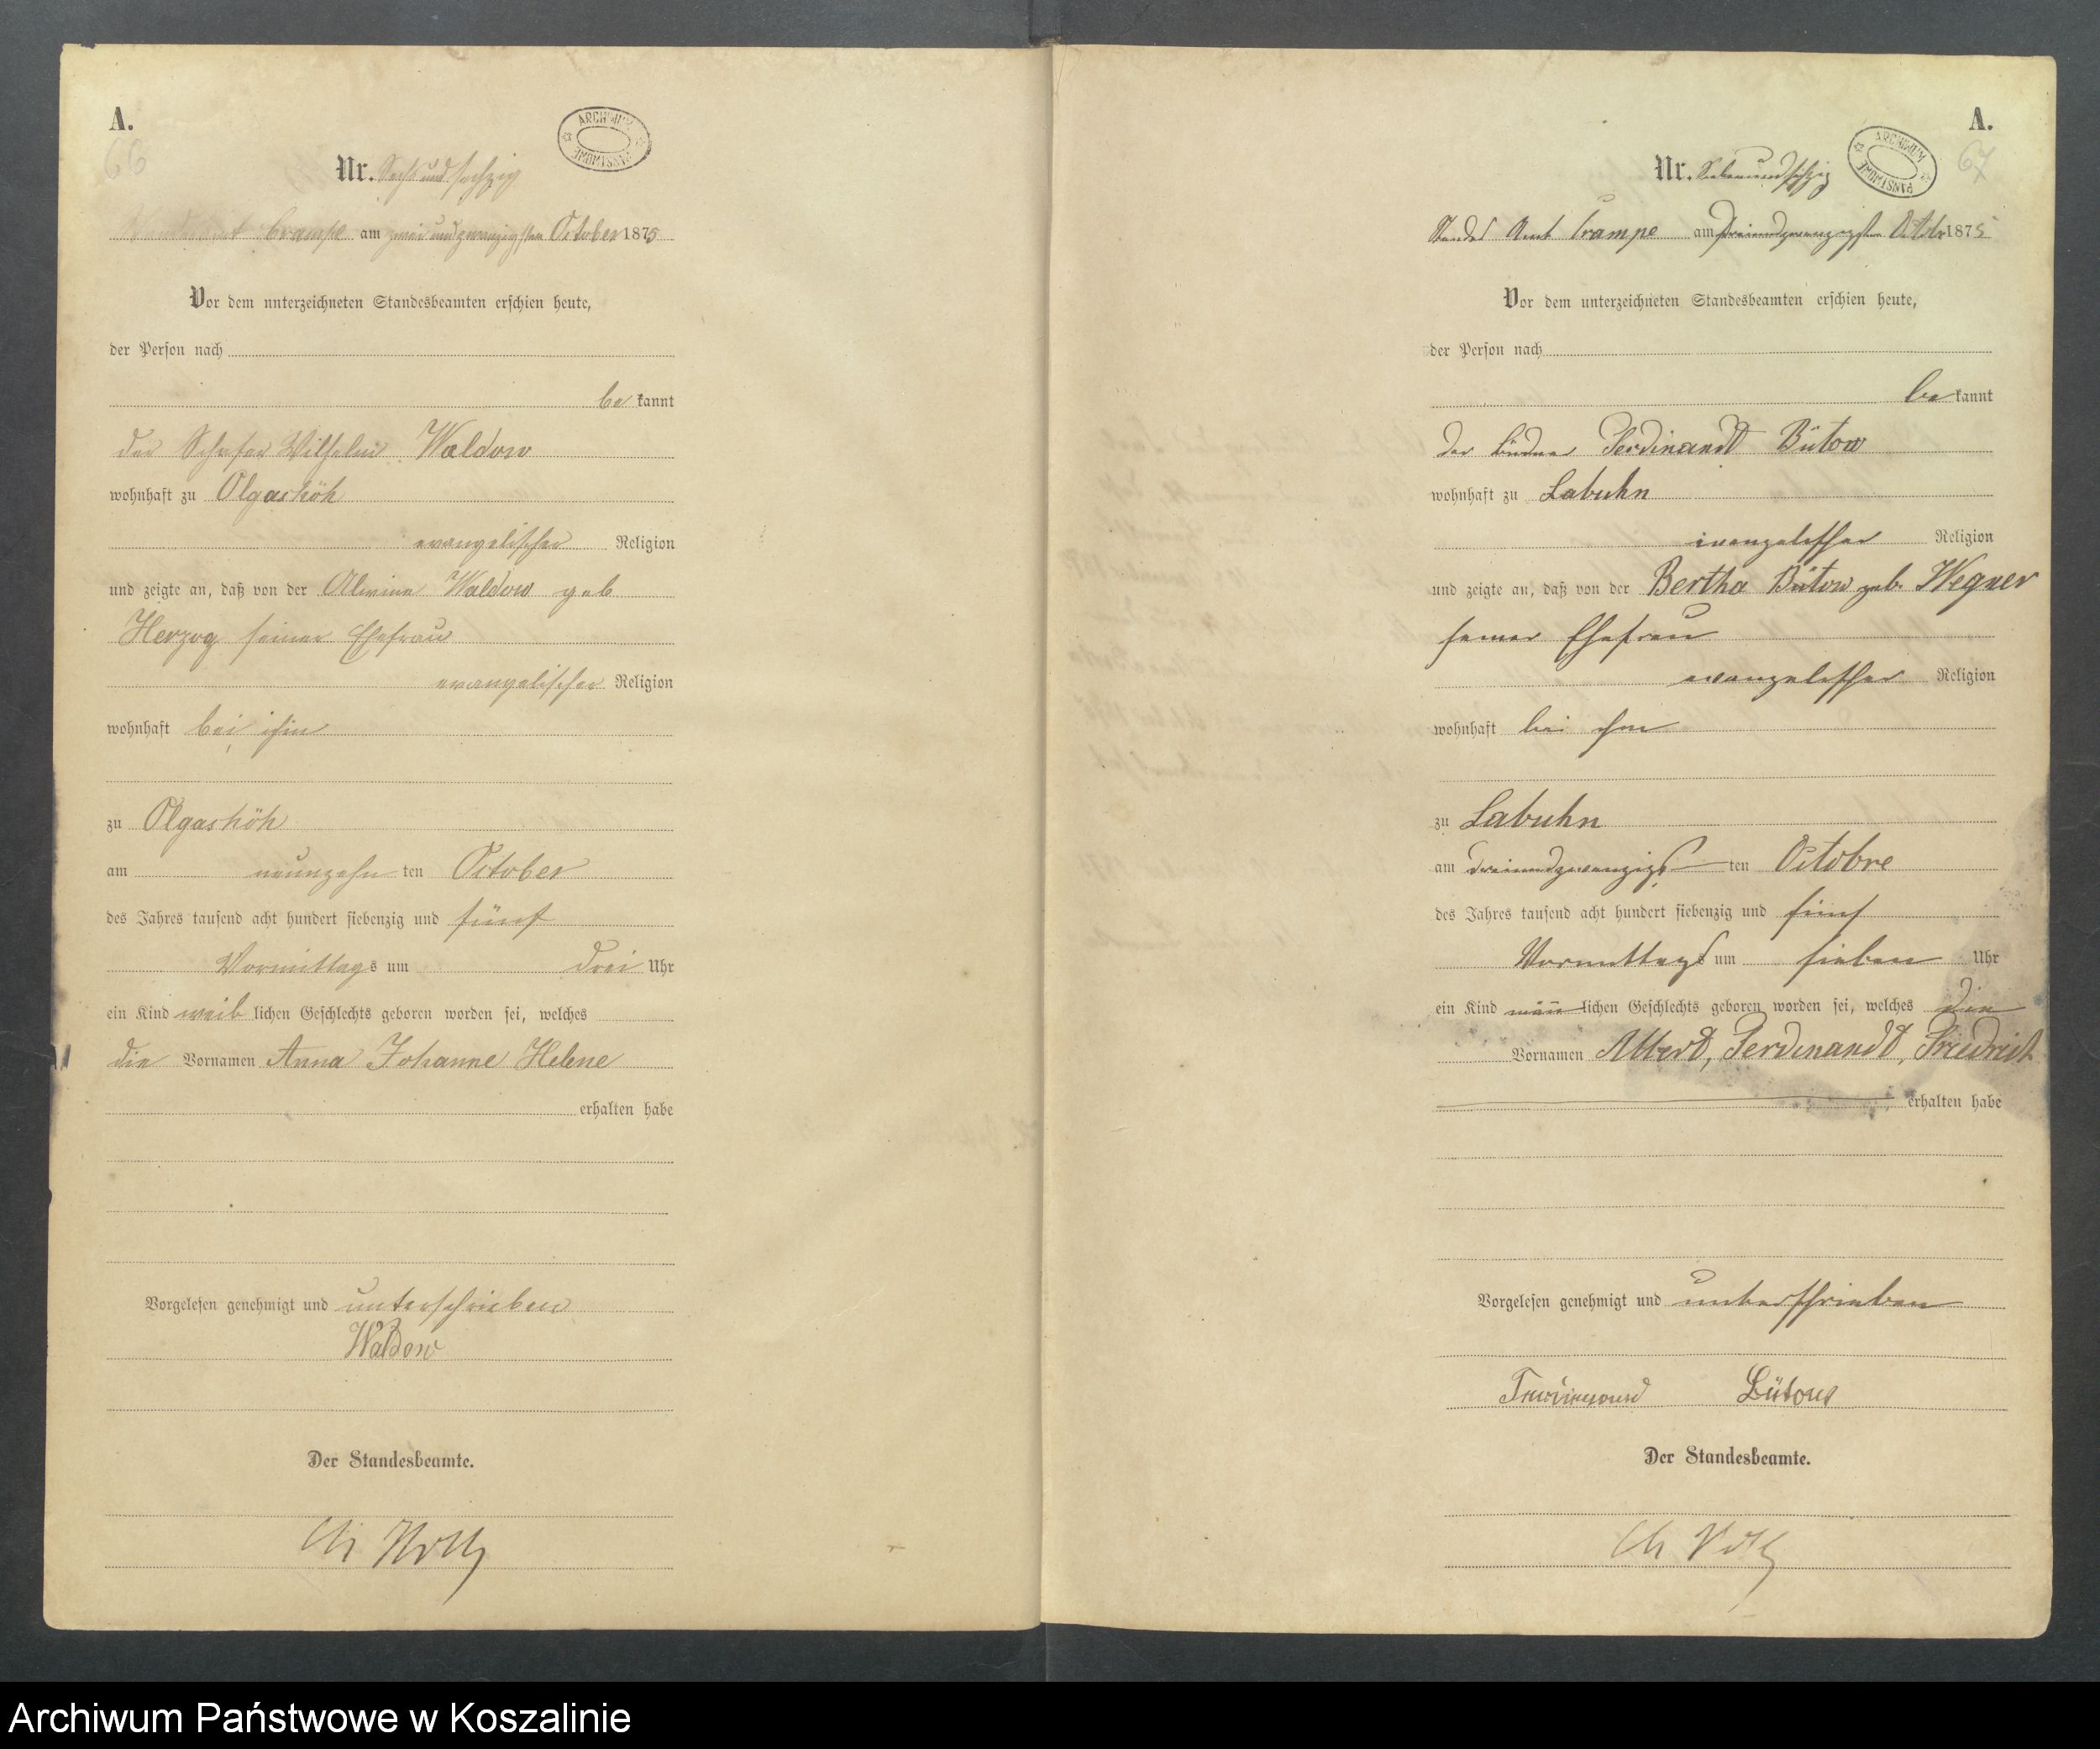 A.
66
ARCHIWUM PAŃSTWOWE
Nr. Sechs und sechzig
Standes Amt Crampe am zwei und zwanzigsten October 1875
Vor dem unterzeichneten Standesbeamten erschien heute,
der Person nach
be kannt
der Schäfer Wilhelm Waldow
wohnhaft zu Olgashöh
evangelischer Religion
und zeigte an, daß von der Alwine Waldow geb
Herzog seiner Ehefrau
evangelischer Religion
wohnhaft bei ihm
zu Olgashöh
am neunzehn ten October
des Jahres tausend acht hundert siebenzig und fünf
Vormittags um drei Uhr
ein Kind weib lichen Geschlechts geboren worden sei, welches
die Vornamen Anna Johanne Helene
erhalten habe
Vorgelesen genehmigt und unterschrieben
Waldow
Der Standesbeamte.
A.
67
ARCHIWUM PAŃSTWOWE
Nr. Siebenundsechzig
Standes Amt Crampe am dreiundzwanzigsten Octobr 1875
Vor dem unterzeichneten Standesbeamten erschien heute,
der Person nach
be kannt
der Büdner Ferdinandt Bütow
wohnhaft zu Labuhn
evangelischer Religion
und zeigte an, daß von der Bertha Bütow geb. Wegner
seiner Ehefrau
evangelischer Religion
wohnhaft bei ihm
zu Labuhn
am dreiundzwanzigs ten Octobre
des Jahres tausend acht hundert siebenzig und fünf
Vormittags um sieben Uhr
ein Kind männ lichen Geschlechts geboren worden sei, welches die
Vornamen Albert, Ferdinandt, Friedrich
erhalten habe
Vorgelesen genehmigt und unterschrieben
Bütow
Der Standesbeamte.
Archiwum Państwowe w Koszalinie